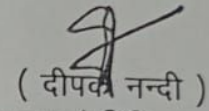 ( दीपक नन्दी )